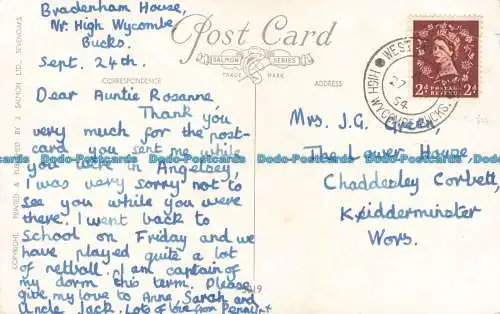 Bradenham House,
Nr. High Wycombe
Bucks.
Sept. 24th.
Post Card
SALMON SERIES
TRADE MARK
CORRESPONDENCE
ADDRESS
Dear Auntie Rosanne,
Thank you
very much for the post-
card you sent me while
you were in Anglesey,
I was very sorry not to
see you while you were
there. I went back to
School on Friday and we
have played quite a lot
of netball. I am captain of
my dorm this term. Please
give my love to Anna, Sarah and
Uncle Jack. Lots of love from Penny x
Mrs. J.G. Green,
The Lower House,
Chaddesley Corbett,
Kidderminster
Wors.
COPYRIGHT. PRINTED & PUBLISHED BY J. SALMON LTD., SEVENOAKS
HIGH WYCOMBE BUCKS.
27
54
2d POSTAGE REVENUE 2d
Postcards Data-Postcards Data-Postcards Data-Postcards